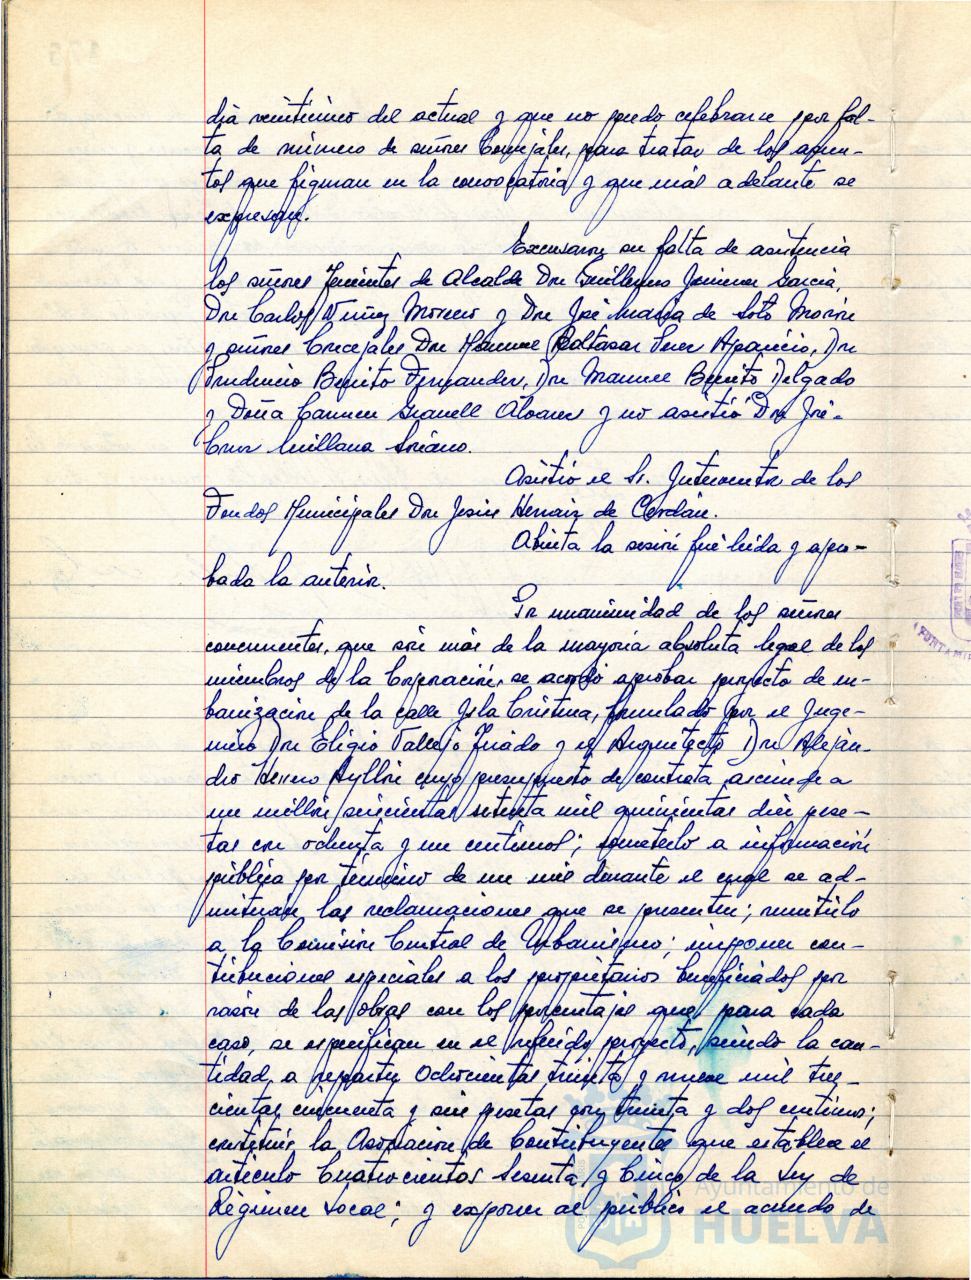 dia veinticinco del actual y que no pudo celebrarse por fal-
ta de número de señores Concejales, para tratar de los asun-
tos que figuran en la convocatoria y que más adelante se
expresan.
Excusaron su falta de asistencia
los señores Tenientes de Alcalde Don Guillermo Jimenez García,
Don Carlos Nuñez Moreno y Don José María de Soto Morón
y señores Concejales Don Manuel Baltasar Aparicio, Don
Prudencio Benito Fernandez, Don Manuel Benito Delgado
y Doña Carmen Granell Álvarez y no asistió Don José
Cruz Millana Soriano.
Asistió el Sr. Interventor de los
Fondos Municipales Don Jesús Hernaiz de Cerdán.
Abierta la sesión fué leida y apro-
bada la anterior.
Por unanimidad de los señores
concurrentes, que son más de la mayoría absoluta legal de los
miembros de la Corporación, se acordó aprobar proyecto de ur-
banización de la calle Isla Cristina, formulado por el Inge-
niero Don Eligio Vallejo Jurado y el Arquitecto Don Alejan-
dro Herrero Ayllón cuyo presupuesto de contrata asciende a
un millón seiscientas setenta mil quinientas diez pese-
tas con ochenta y un centimos; someterlo a información
pública por término de un mes durante el cual se ad-
mitirán las reclamaciones que se presenten; remitirlo
a la Comisión Central de Urbanismo; imponer con-
tribuciones especiales a los propietarios beneficiados por
razón de las obras con los porcentajes que, para cada
caso, se especifican en el referido proyecto, siendo la can-
tidad a repartir Ochocientas treinta y nueve mil tres-
cientas cincuenta y seis pesetas con treinta y dos centimos;
constituir la Asociacion de Contribuyentes que establece el
articulo Cuatrocientos Sesenta y Cinco de la Ley de
Régimen Local; y exponer al público el acuerdo de
Ayuntamiento de
HUELVA